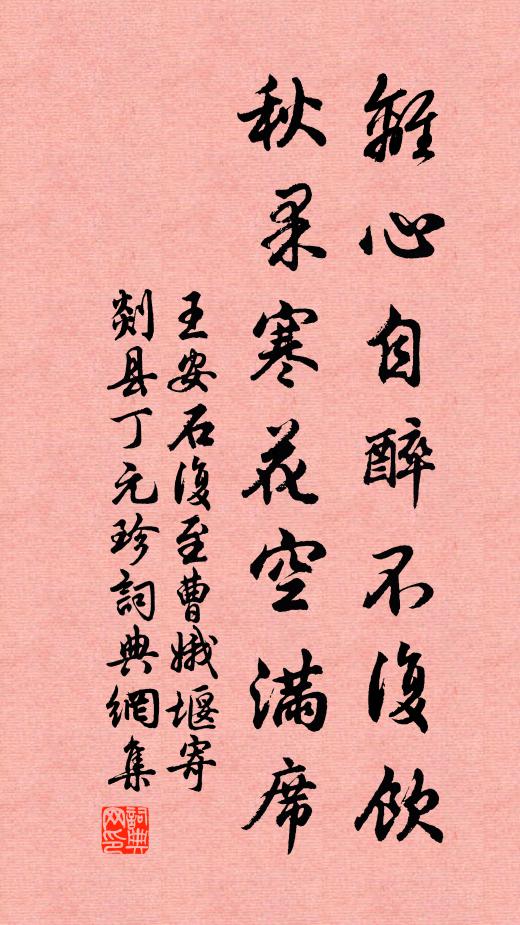 離心自醉不復飲
秋果寒花空滿席
王安石復至曹娥堰寄
剡县丁元珍詞典網集
詞典
网印